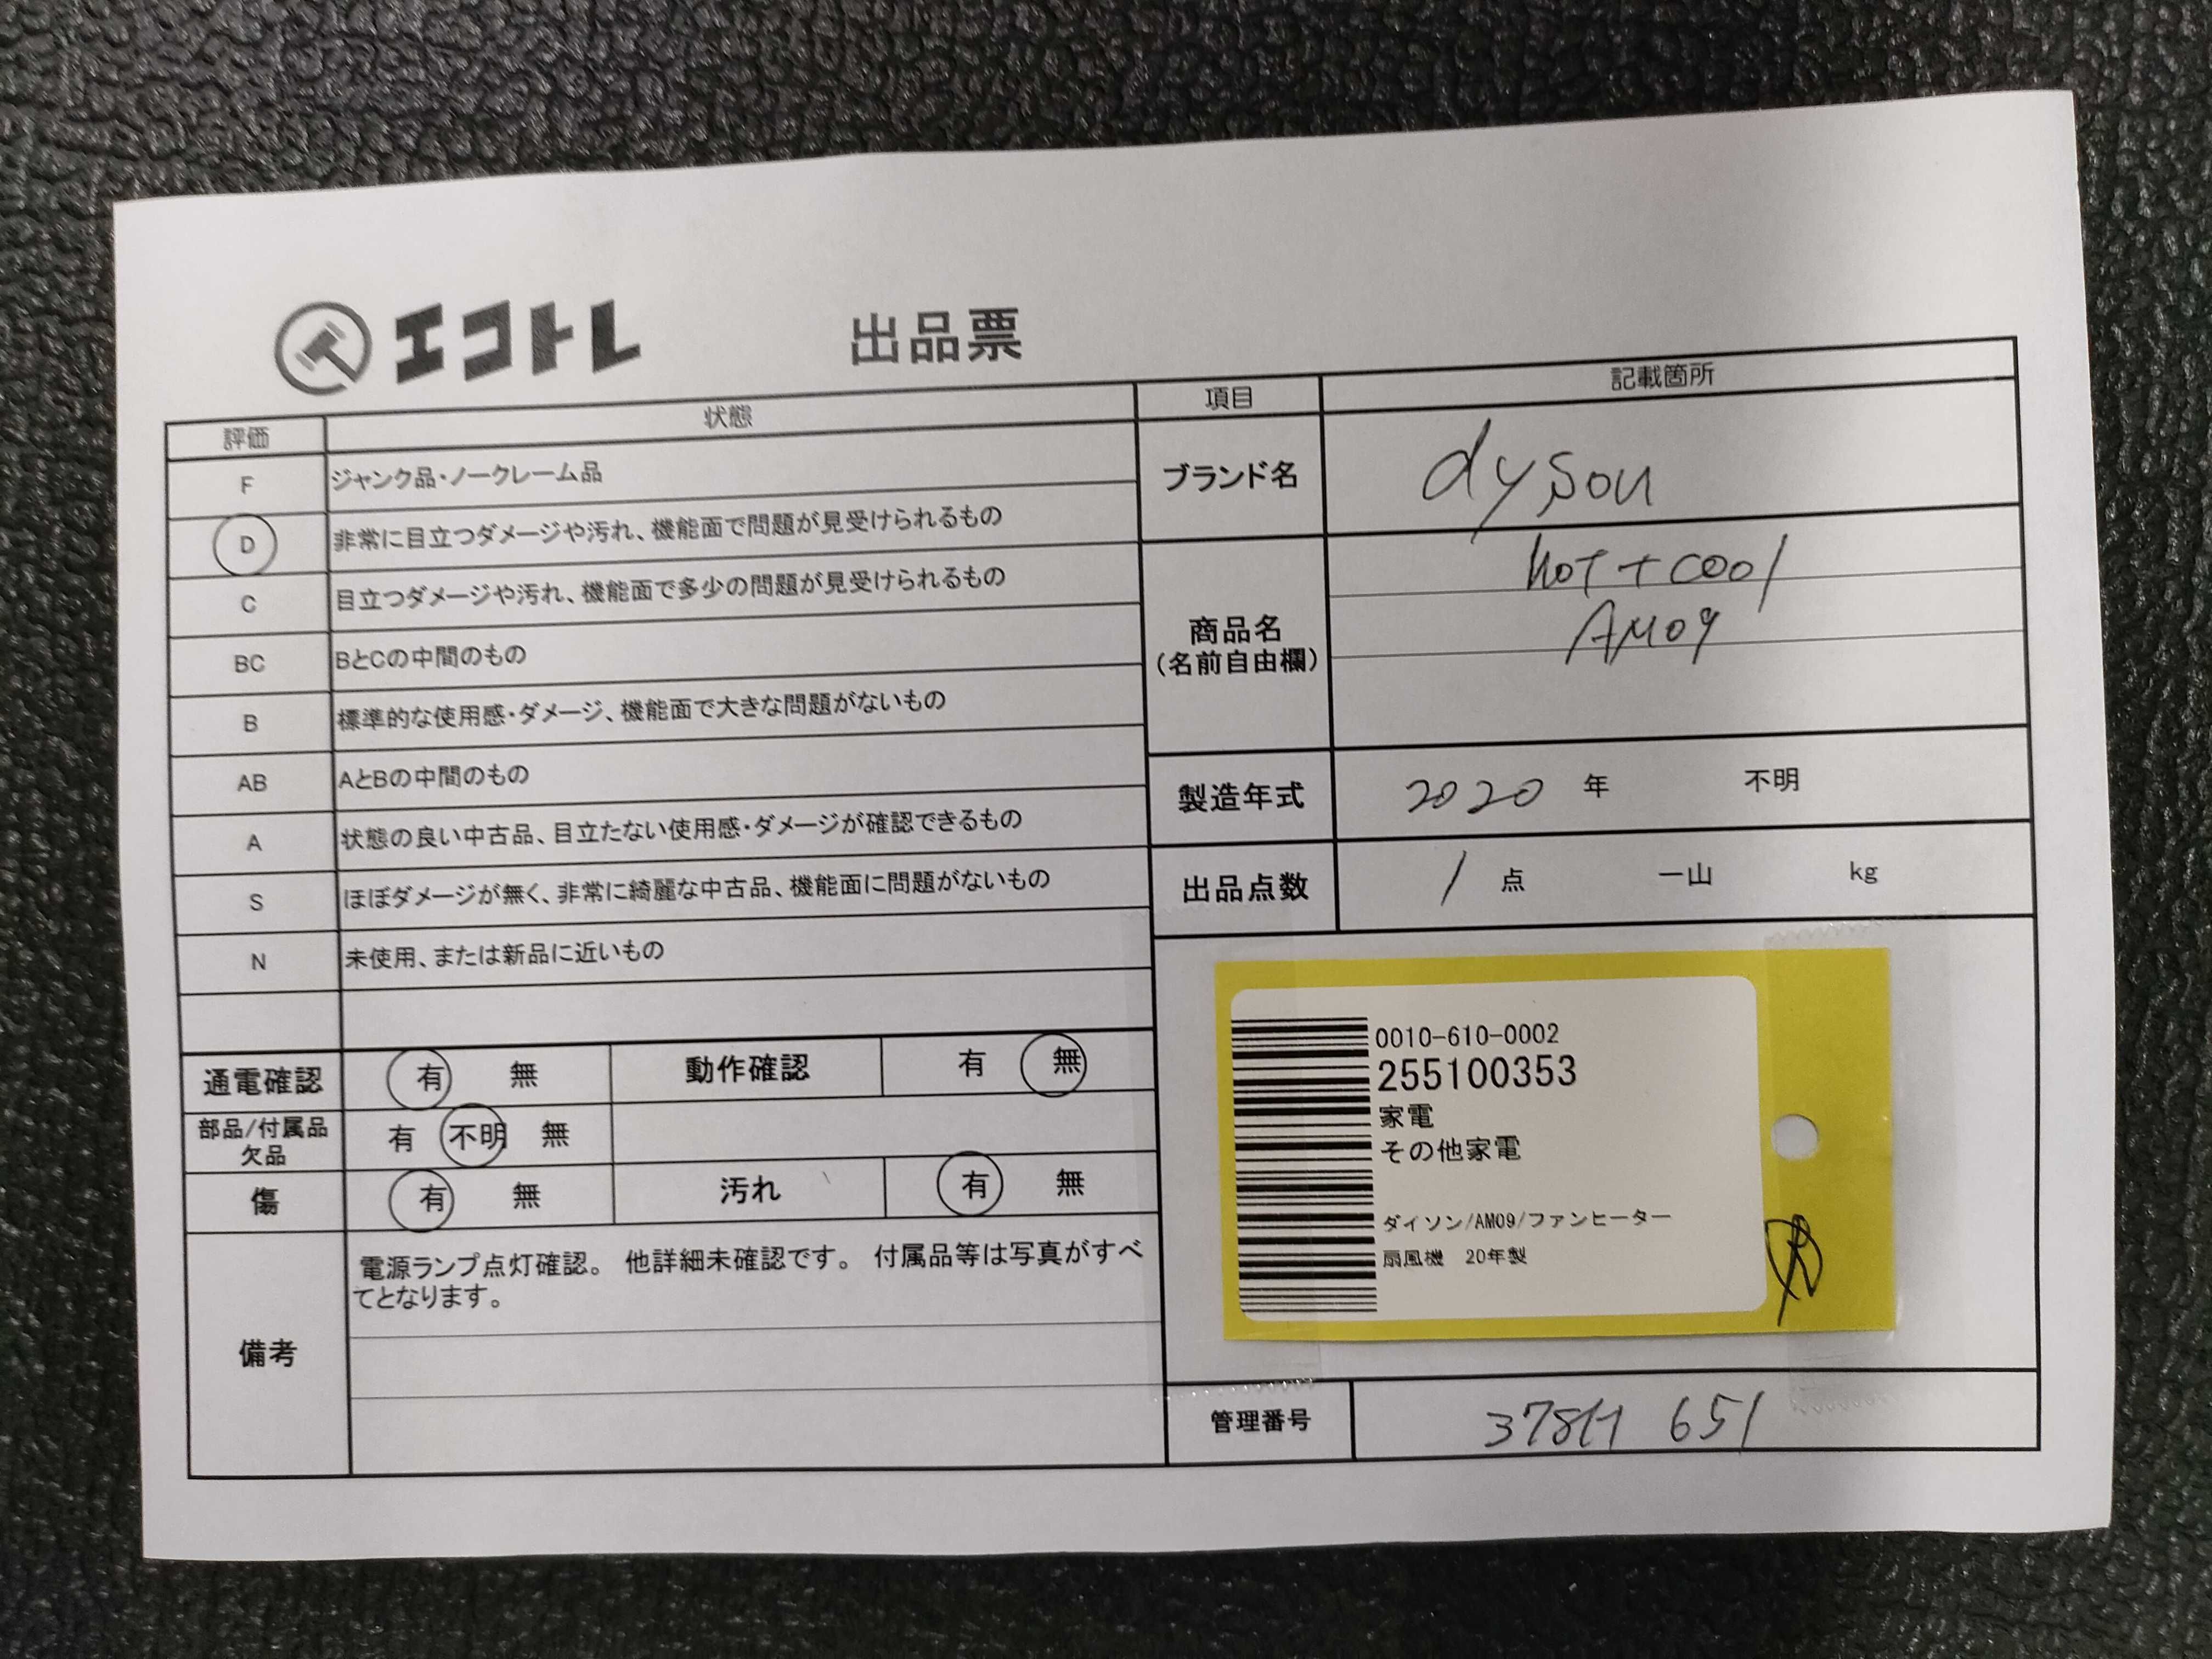 エコトレ 出品票
評価 状態
F ジャンク品・ノークレーム品
D 非常に目立つダメージや汚れ、機能面で問題が見受けられるもの
C 目立つダメージや汚れ、機能面で多少の問題が見受けられるもの
BC BとCの中間のもの
B 標準的な使用感・ダメージ、機能面で大きな問題がないもの
AB AとBの中間のもの
A 状態の良い中古品、目立たない使用感・ダメージが確認できるもの
S ほぼダメージが無く、非常に綺麗な中古品、機能面に問題がないもの
N 未使用、または新品に近いもの
通電確認 有 無 動作確認 有 無
部品/付属品
欠品 有 不明 無
傷 有 無 汚れ 有 無
備考
電源ランプ点灯確認。 他詳細未確認です。 付属品等は写真がすべ
てとなります。
項目 記載箇所
ブランド名 dyson
商品名
(名前自由欄)
HOT + COOl
AM09
製造年式 2020 年 不明
出品点数 1 点 一山 kg
0010-610-0002
255100353
家電
その他家電
ダイソン/AM09/ファンヒーター
扇風機 20年製
管理番号 378H 651